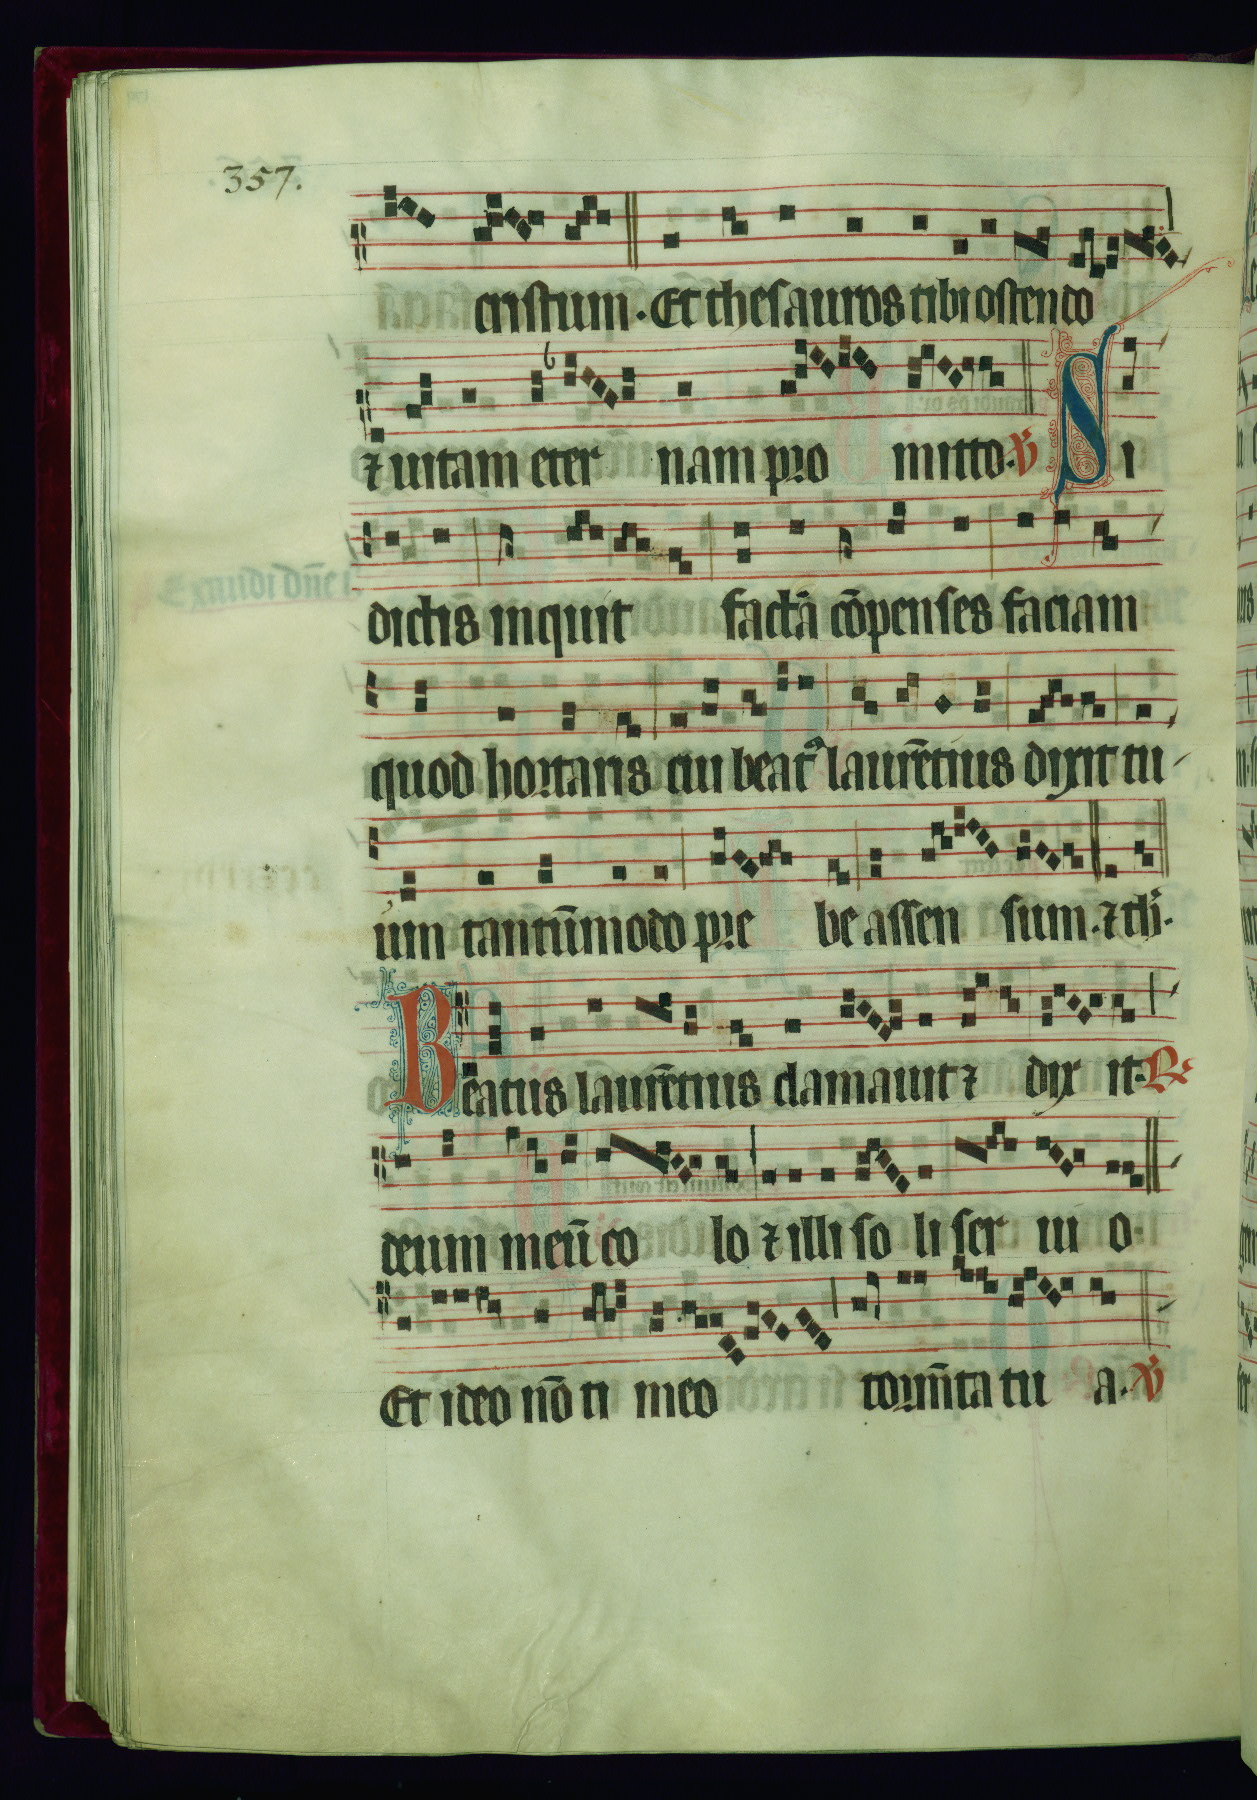 357.
cristum. Et thesauros tibi ostendo
⁊ uitam eter nam pro mitto. V̾ Si
dictis inquit factā cōpenses faciam
quod hortaris cui beatꝰ laurētius dixit tu
um tantūmodo pre be assen sum. ⁊ th̾.
Beatus laurētius clamauit ⁊ dix it. R̾
deum meū co lo ⁊ illi so li ser ui o.
Et ideo nō ti meo tormēta tu a. V̾